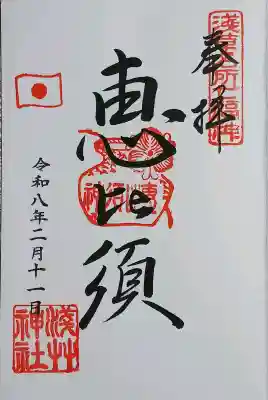 奉拝
浅草名所七福神
恵比須
令和八年二月十一日
浅草神社